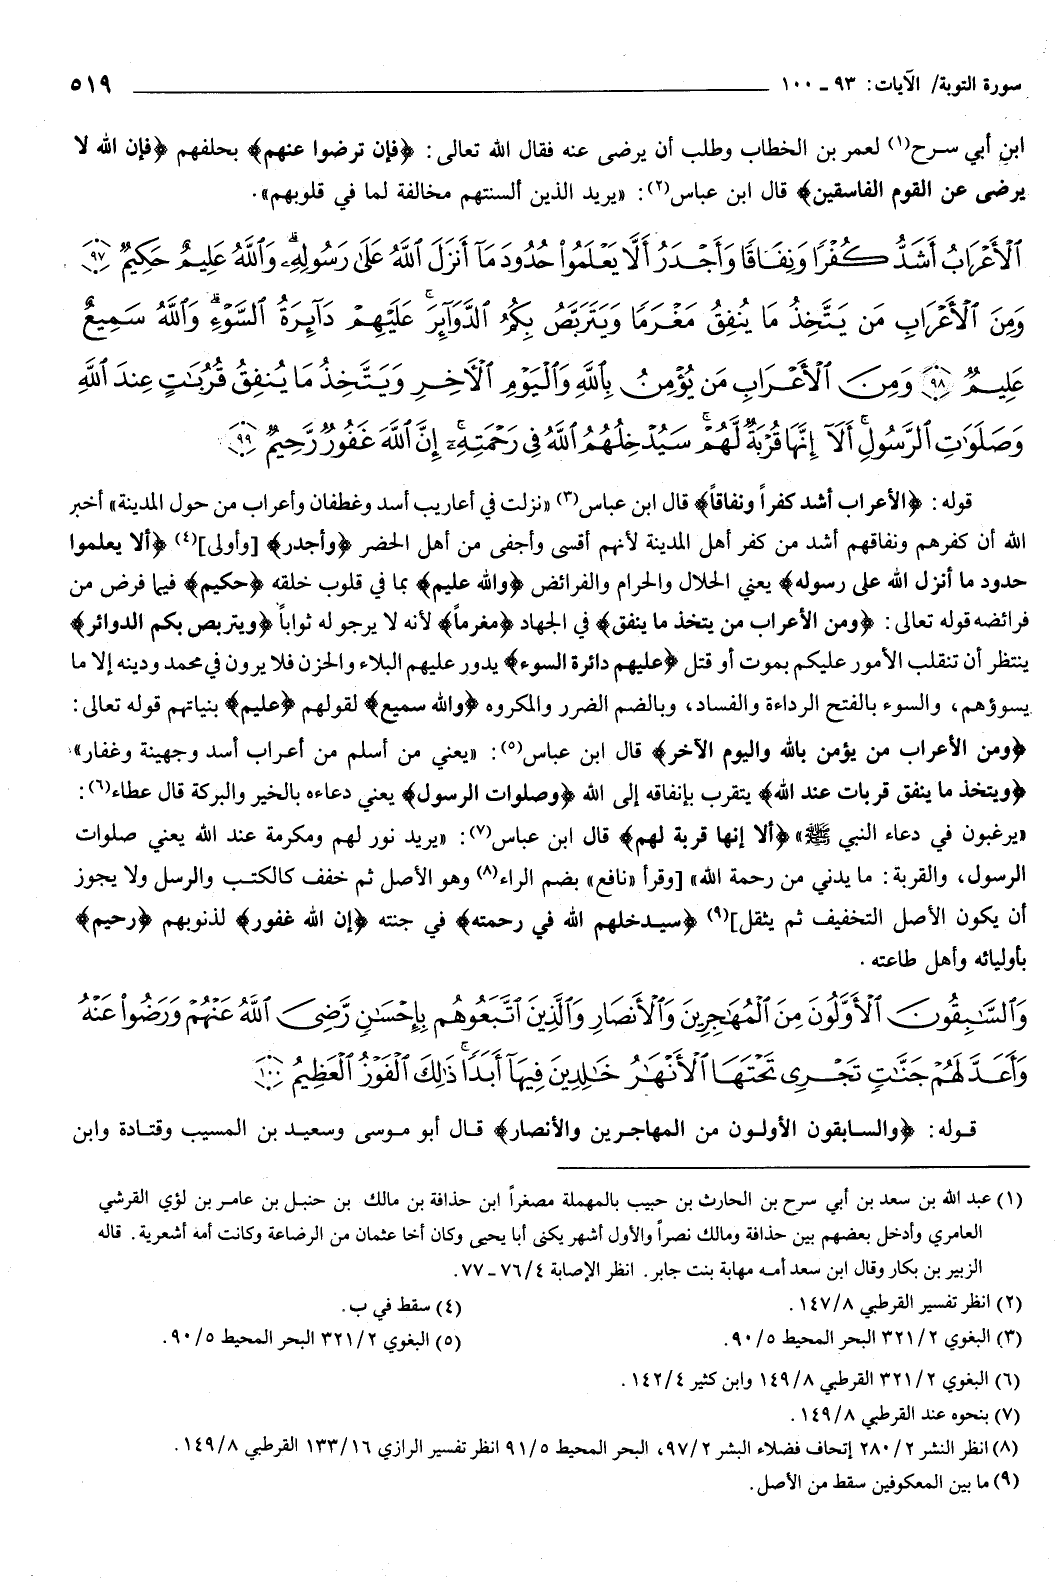 سورة التوبة/ الآيات: ٩٣ ـ ١٠٠ ٥١٩
ابن أبي سرح(١) لعمر بن الخطاب وطلب أن يرضى عنه فقال الله تعالى: ﴿فإن ترضوا عنهم﴾ بحلفهم ﴿فإن الله لا
يرضى عن القوم الفاسقين﴾ قال ابن عباس(٢): «يريد الذين ألسنتهم مخالفة لما في قلوبهم».
ٱلْأَعْرَابُ أَشَدُّ كُفْرًا وَنِفَاقًا وَأَجْدَرُ أَلَّا يَعْلَمُوا۟ حُدُودَ مَآ أَنزَلَ ٱللَّهُ عَلَىٰ رَسُولِهِۦ ۗ وَٱللَّهُ عَلِيمٌ حَكِيمٌ ٩٧
وَمِنَ ٱلْأَعْرَابِ مَن يَتَّخِذُ مَا يُنفِقُ مَغْرَمًا وَيَتَرَبَّصُ بِكُمُ ٱلدَّوَآئِرَ ۚ عَلَيْهِمْ دَآئِرَةُ ٱلسَّوْءِ ۗ وَٱللَّهُ سَمِيعٌ
عَلِيمٌ ٩٨ وَمِنَ ٱلْأَعْرَابِ مَن يُؤْمِنُ بِٱللَّهِ وَٱلْيَوْمِ ٱلْآخِرِ وَيَتَّخِذُ مَا يُنفِقُ قُرُبَـٰتٍ عِندَ ٱللَّهِ
وَصَلَوَٰتِ ٱلرَّسُولِ ۚ أَلَآ إِنَّهَا قُرْبَةٌ لَّهُمْ ۚ سَيُدْخِلُهُمُ ٱللَّهُ فِى رَحْمَتِهِۦٓ ۚ إِنَّ ٱللَّهَ غَفُورٌ رَّحِيمٌ ٩٩
قوله: ﴿الأعراب أشد كفراً ونفاقاً﴾ قال ابن عباس(٣) «نزلت في أعاريب أسد وغطفان وأعراب من حول المدينة» أخبر
الله أن كفرهم ونفاقهم أشد من كفر أهل المدينة لأنهم أقسى وأجفى من أهل الحضر ﴿وأجدر﴾ [وأولى](٤) ﴿ألا يعلموا
حدود ما أنزل الله على رسوله﴾ يعني الحلال والحرام والفرائض ﴿والله عليم﴾ بما في قلوب خلقه ﴿حكيم﴾ فيما فرض من
فرائضه قوله تعالى: ﴿ومن الأعراب من يتخذ ما ينفق﴾ في الجهاد ﴿مغرماً﴾ لأنه لا يرجو له ثواباً ﴿ويتربص بكم الدوائر﴾
ينتظر أن تنقلب الأمور عليكم بموت أو قتل ﴿عليهم دائرة السوء﴾ يدور عليهم البلاء والحزن فلا يرون في محمد ودينه إلا ما
يسوؤهم، والسوء بالفتح الرداءة والفساد، وبالضم الضرر والمكروه ﴿والله سميع﴾ لقولهم ﴿عليم﴾ بنياتهم قوله تعالى:
﴿ومن الأعراب من يؤمن بالله واليوم الآخر﴾ قال ابن عباس(٥): «يعني من أسلم من أعراب أسد وجهينة وغفار»
﴿ويتخذ ما ينفق قربات عند الله﴾ يتقرب بإنفاقه إلى الله ﴿وصلوات الرسول﴾ يعني دعاءه بالخير والبركة قال عطاء(٦):
«يرغبون في دعاء النبي ﷺ» ﴿ألا إنها قربة لهم﴾ قال ابن عباس(٧): «يريد نور لهم ومكرمة عند الله يعني صلوات
الرسول، والقربة: ما يدني من رحمة الله» [وقرأ «نافع» بضم الراء(٨) وهو الأصل ثم خفف كالكتب والرسل ولا يجوز
أن يكون الأصل التخفيف ثم يثقل](٩) ﴿سيدخلهم الله في رحمته﴾ في جنته ﴿إن الله غفور﴾ لذنوبهم ﴿رحيم﴾
بأوليائه وأهل طاعته.
وَٱلسَّـٰبِقُونَ ٱلْأَوَّلُونَ مِنَ ٱلْمُهَـٰجِرِينَ وَٱلْأَنصَارِ وَٱلَّذِينَ ٱتَّبَعُوهُم بِإِحْسَـٰنٍ رَّضِىَ ٱللَّهُ عَنْهُمْ وَرَضُوا۟ عَنْهُ
وَأَعَدَّ لَهُمْ جَنَّـٰتٍ تَجْرِى تَحْتَهَا ٱلْأَنْهَـٰرُ خَـٰلِدِينَ فِيهَآ أَبَدًا ۚ ذَٰلِكَ ٱلْفَوْزُ ٱلْعَظِيمُ ١٠٠
قوله: ﴿والسابقون الأولون من المهاجرين والأنصار﴾ قال أبو موسى وسعيد بن المسيب وقتادة وابن
(١) عبد الله بن سعد بن أبي سرح بن الحارث بن حبيب بالمهملة مصغراً ابن حذافة بن مالك بن حنبل بن عامر بن لؤي القرشي
العامري وأدخل بعضهم بين حذافة ومالك نصراً والأول أشهر يكنى أبا يحيى وكان أخا عثمان من الرضاعة وكانت أمه أشعرية. قاله
الزبير بن بكار وقال ابن سعد أمه مهابة بنت جابر. انظر الإصابة ٤/ ٧٦ ـ ٧٧.
(٢) انظر تفسير القرطبي ٨/ ١٤٧. (٤) سقط في ب.
(٣) البغوي ٢/ ٣٢١ البحر المحيط ٥/ ٩٠. (٥) البغوي ٢/ ٣٢١ البحر المحيط ٥/ ٩٠.
(٦) البغوي ٢/ ٣٢١ القرطبي ٨/ ١٤٩ وابن كثير ٤/ ١٤٢.
(٧) بنحوه عند القرطبي ٨/ ١٤٩.
(٨) انظر النشر ٢/ ٢٨٠ إتحاف فضلاء البشر ٢/ ٩٧، البحر المحيط ٥/ ٩١ انظر تفسير الرازي ١٦/ ١٣٣ القرطبي ٨/ ١٤٩.
(٩) ما بين المعكوفين سقط من الأصل.